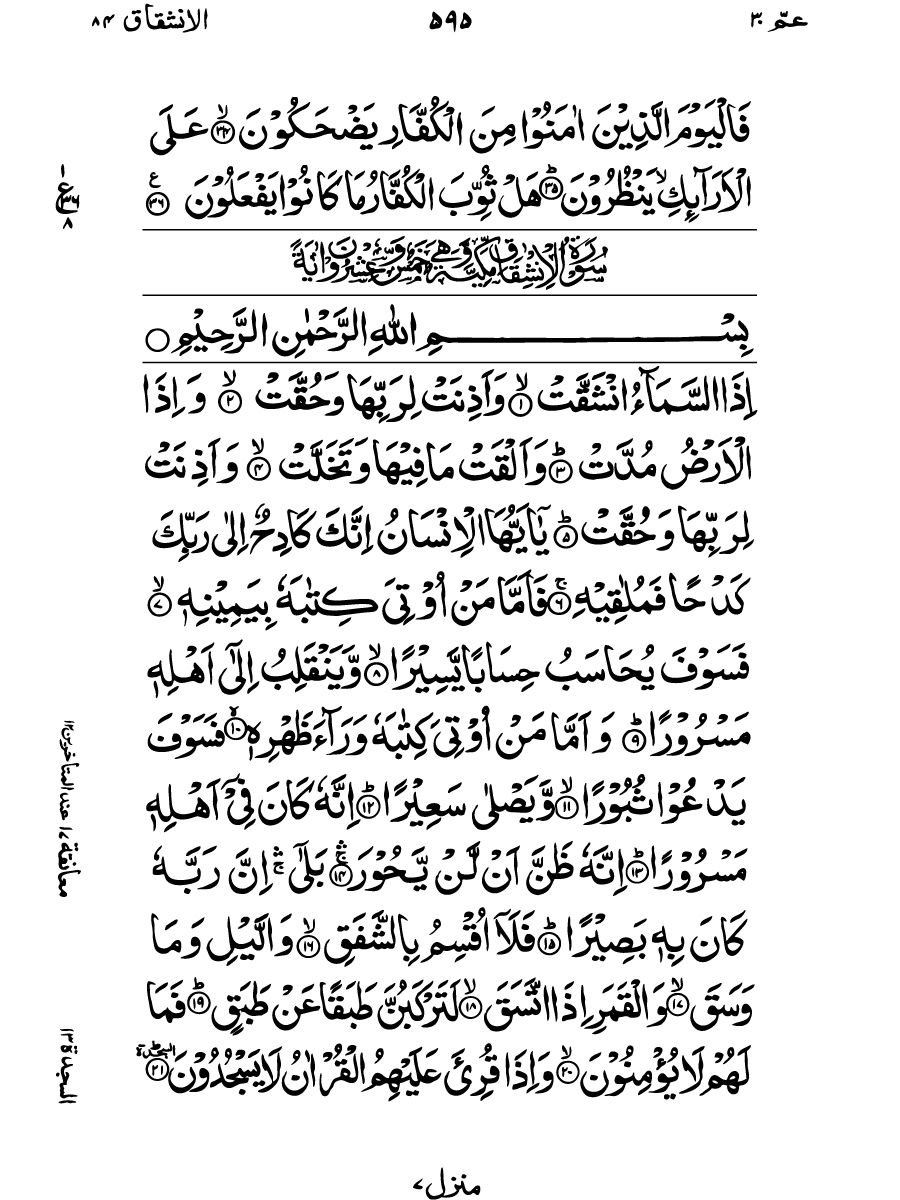 عمّ ۳۰ ۵۹۵ الانشقاق ۸۴
فَالْيَوْمَ الَّذِيْنَ اٰمَنُوْا مِنَ الْكُفَّارِ يَضْحَكُوْنَ ﴿ۙ۳۴﴾ عَلَى
الْاَرَآئِكِ ۙ يَنْظُرُوْنَ ﴿ؕ۳۵﴾ هَلْ ثُوِّبَ الْكُفَّارُ مَا كَانُوْا يَفْعَلُوْنَ ﴿۳۶﴾ ع
ع ۳۶ ۸
سُوْرَةُ الْاِنْشِقَاقِ مَكِّيَّةٌ وَّهِيَ خَمْسٌ وَّعِشْرُوْنَ اٰيَةً
بِسْمِ اللهِ الرَّحْمٰنِ الرَّحِيْمِ ○
اِذَا السَّمَآءُ انْشَقَّتْ ﴿ۙ۱﴾ وَاَذِنَتْ لِرَبِّهَا وَحُقَّتْ ﴿ۙ۲﴾ وَاِذَا
الْاَرْضُ مُدَّتْ ﴿ؕ۳﴾ وَاَلْقَتْ مَا فِيْهَا وَتَخَلَّتْ ﴿ۙ۴﴾ وَاَذِنَتْ
لِرَبِّهَا وَحُقَّتْ ﴿ؕ۵﴾ يٰۤاَيُّهَا الْاِنْسَانُ اِنَّكَ كَادِحٌ اِلٰى رَبِّكَ
كَدْحًا فَمُلٰقِيْهِ ﴿ۚ۶﴾ فَاَمَّا مَنْ اُوْتِيَ كِتٰبَهٗ بِيَمِيْنِهٖ ﴿ۙ۷﴾
فَسَوْفَ يُحَاسَبُ حِسَابًا يَّسِيْرًا ﴿ۙ۸﴾ وَّيَنْقَلِبُ اِلٰۤى اَهْلِهٖ
مَسْرُوْرًا ﴿ؕ۹﴾ وَاَمَّا مَنْ اُوْتِيَ كِتٰبَهٗ وَرَآءَ ظَهْرِهٖ ﴿ۙ۱۰﴾ فَسَوْفَ
يَدْعُوْا ثُبُوْرًا ﴿ۙ۱۱﴾ وَّيَصْلٰى سَعِيْرًا ﴿ؕ۱۲﴾ اِنَّهٗ كَانَ فِيْۤ اَهْلِهٖ
مَسْرُوْرًا ﴿ؕ۱۳﴾ اِنَّهٗ ظَنَّ اَنْ لَّنْ يَّحُوْرَ ﴿ۚۛ۱۴﴾ بَلٰۤى ۚۛ اِنَّ رَبَّهٗ
معانقة ۱۷ عند المتأخرين ۱۲
كَانَ بِهٖ بَصِيْرًا ﴿ؕ۱۵﴾ فَلَاۤ اُقْسِمُ بِالشَّفَقِ ﴿ۙ۱۶﴾ وَالَّيْلِ وَمَا
وَسَقَ ﴿ۙ۱۷﴾ وَالْقَمَرِ اِذَا اتَّسَقَ ﴿ۙ۱۸﴾ لَتَرْكَبُنَّ طَبَقًا عَنْ طَبَقٍ ﴿ؕ۱۹﴾ فَمَا
لَهُمْ لَا يُؤْمِنُوْنَ ﴿ۙ۲۰﴾ وَاِذَا قُرِئَ عَلَيْهِمُ الْقُرْاٰنُ لَا يَسْجُدُوْنَ ﴿۲۱﴾ السجدة
السجدة ۱۳
منزل ۷